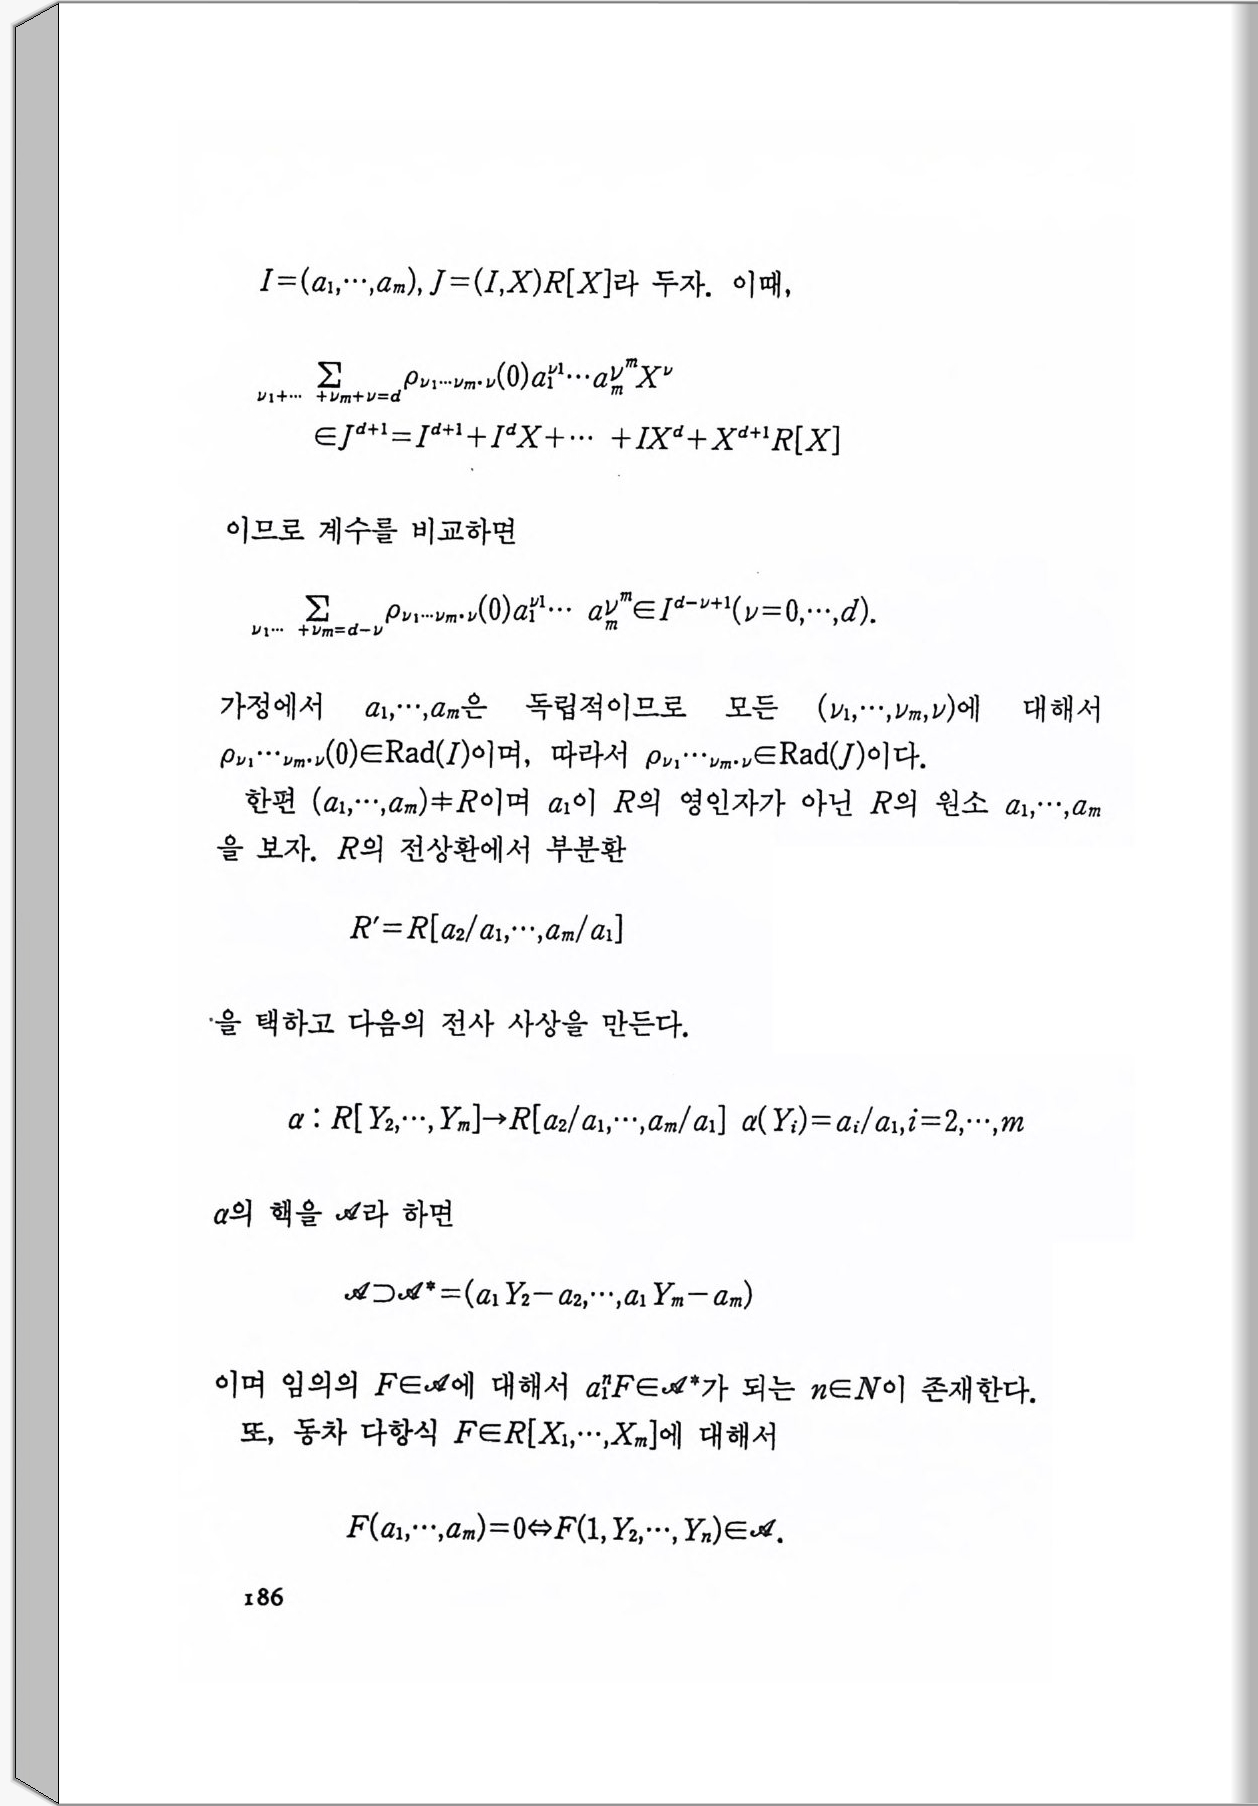 I=(a₁,⋯,aₘ), J=(I,X)R[X]라 두자. 이때,
∑_{ν₁+⋯ +νₘ+ν=d} ρ_{ν₁⋯νₘ·ν}(0)a₁^{ν₁}⋯aₘ^{νₘ}X^ν
∈J^{d+1}=I^{d+1}+I^dX+⋯ +IX^d+X^{d+1}R[X]
이므로 계수를 비교하면
∑_{ν₁⋯ +νₘ=d−ν} ρ_{ν₁⋯νₘ·ν}(0)a₁^{ν₁}⋯ aₘ^{νₘ}∈I^{d−ν+1}(ν=0,⋯,d).
가정에서 a₁,⋯,aₘ은 독립적이므로 모든 (ν₁,⋯,νₘ,ν)에 대해서
ρ_{ν₁}⋯_{νₘ·ν}(0)∈Rad(I)이며, 따라서 ρ_{ν₁}⋯_{νₘ·ν}∈Rad(J)이다.
한편 (a₁,⋯,aₘ)≠R이며 a₁이 R의 영인자가 아닌 R의 원소 a₁,⋯,aₘ
을 보자. R의 전상환에서 부분환
R′=R[a₂/a₁,⋯,aₘ/a₁]
을 택하고 다음의 전사 사상을 만든다.
α : R[Y₂,⋯,Yₘ]→R[a₂/a₁,⋯,aₘ/a₁] α(Yᵢ)=aᵢ/a₁,i=2,⋯,m
α의 핵을 𝒜라 하면
𝒜⊃𝒜*=(a₁Y₂−a₂,⋯,a₁Yₘ−aₘ)
이며 임의의 F∈𝒜에 대해서 a₁ⁿF∈𝒜*가 되는 n∈N이 존재한다.
또, 동차 다항식 F∈R[X₁,⋯,Xₘ]에 대해서
F(a₁,⋯,aₘ)=0⇔F(1,Y₂,⋯,Yₙ)∈𝒜.
186